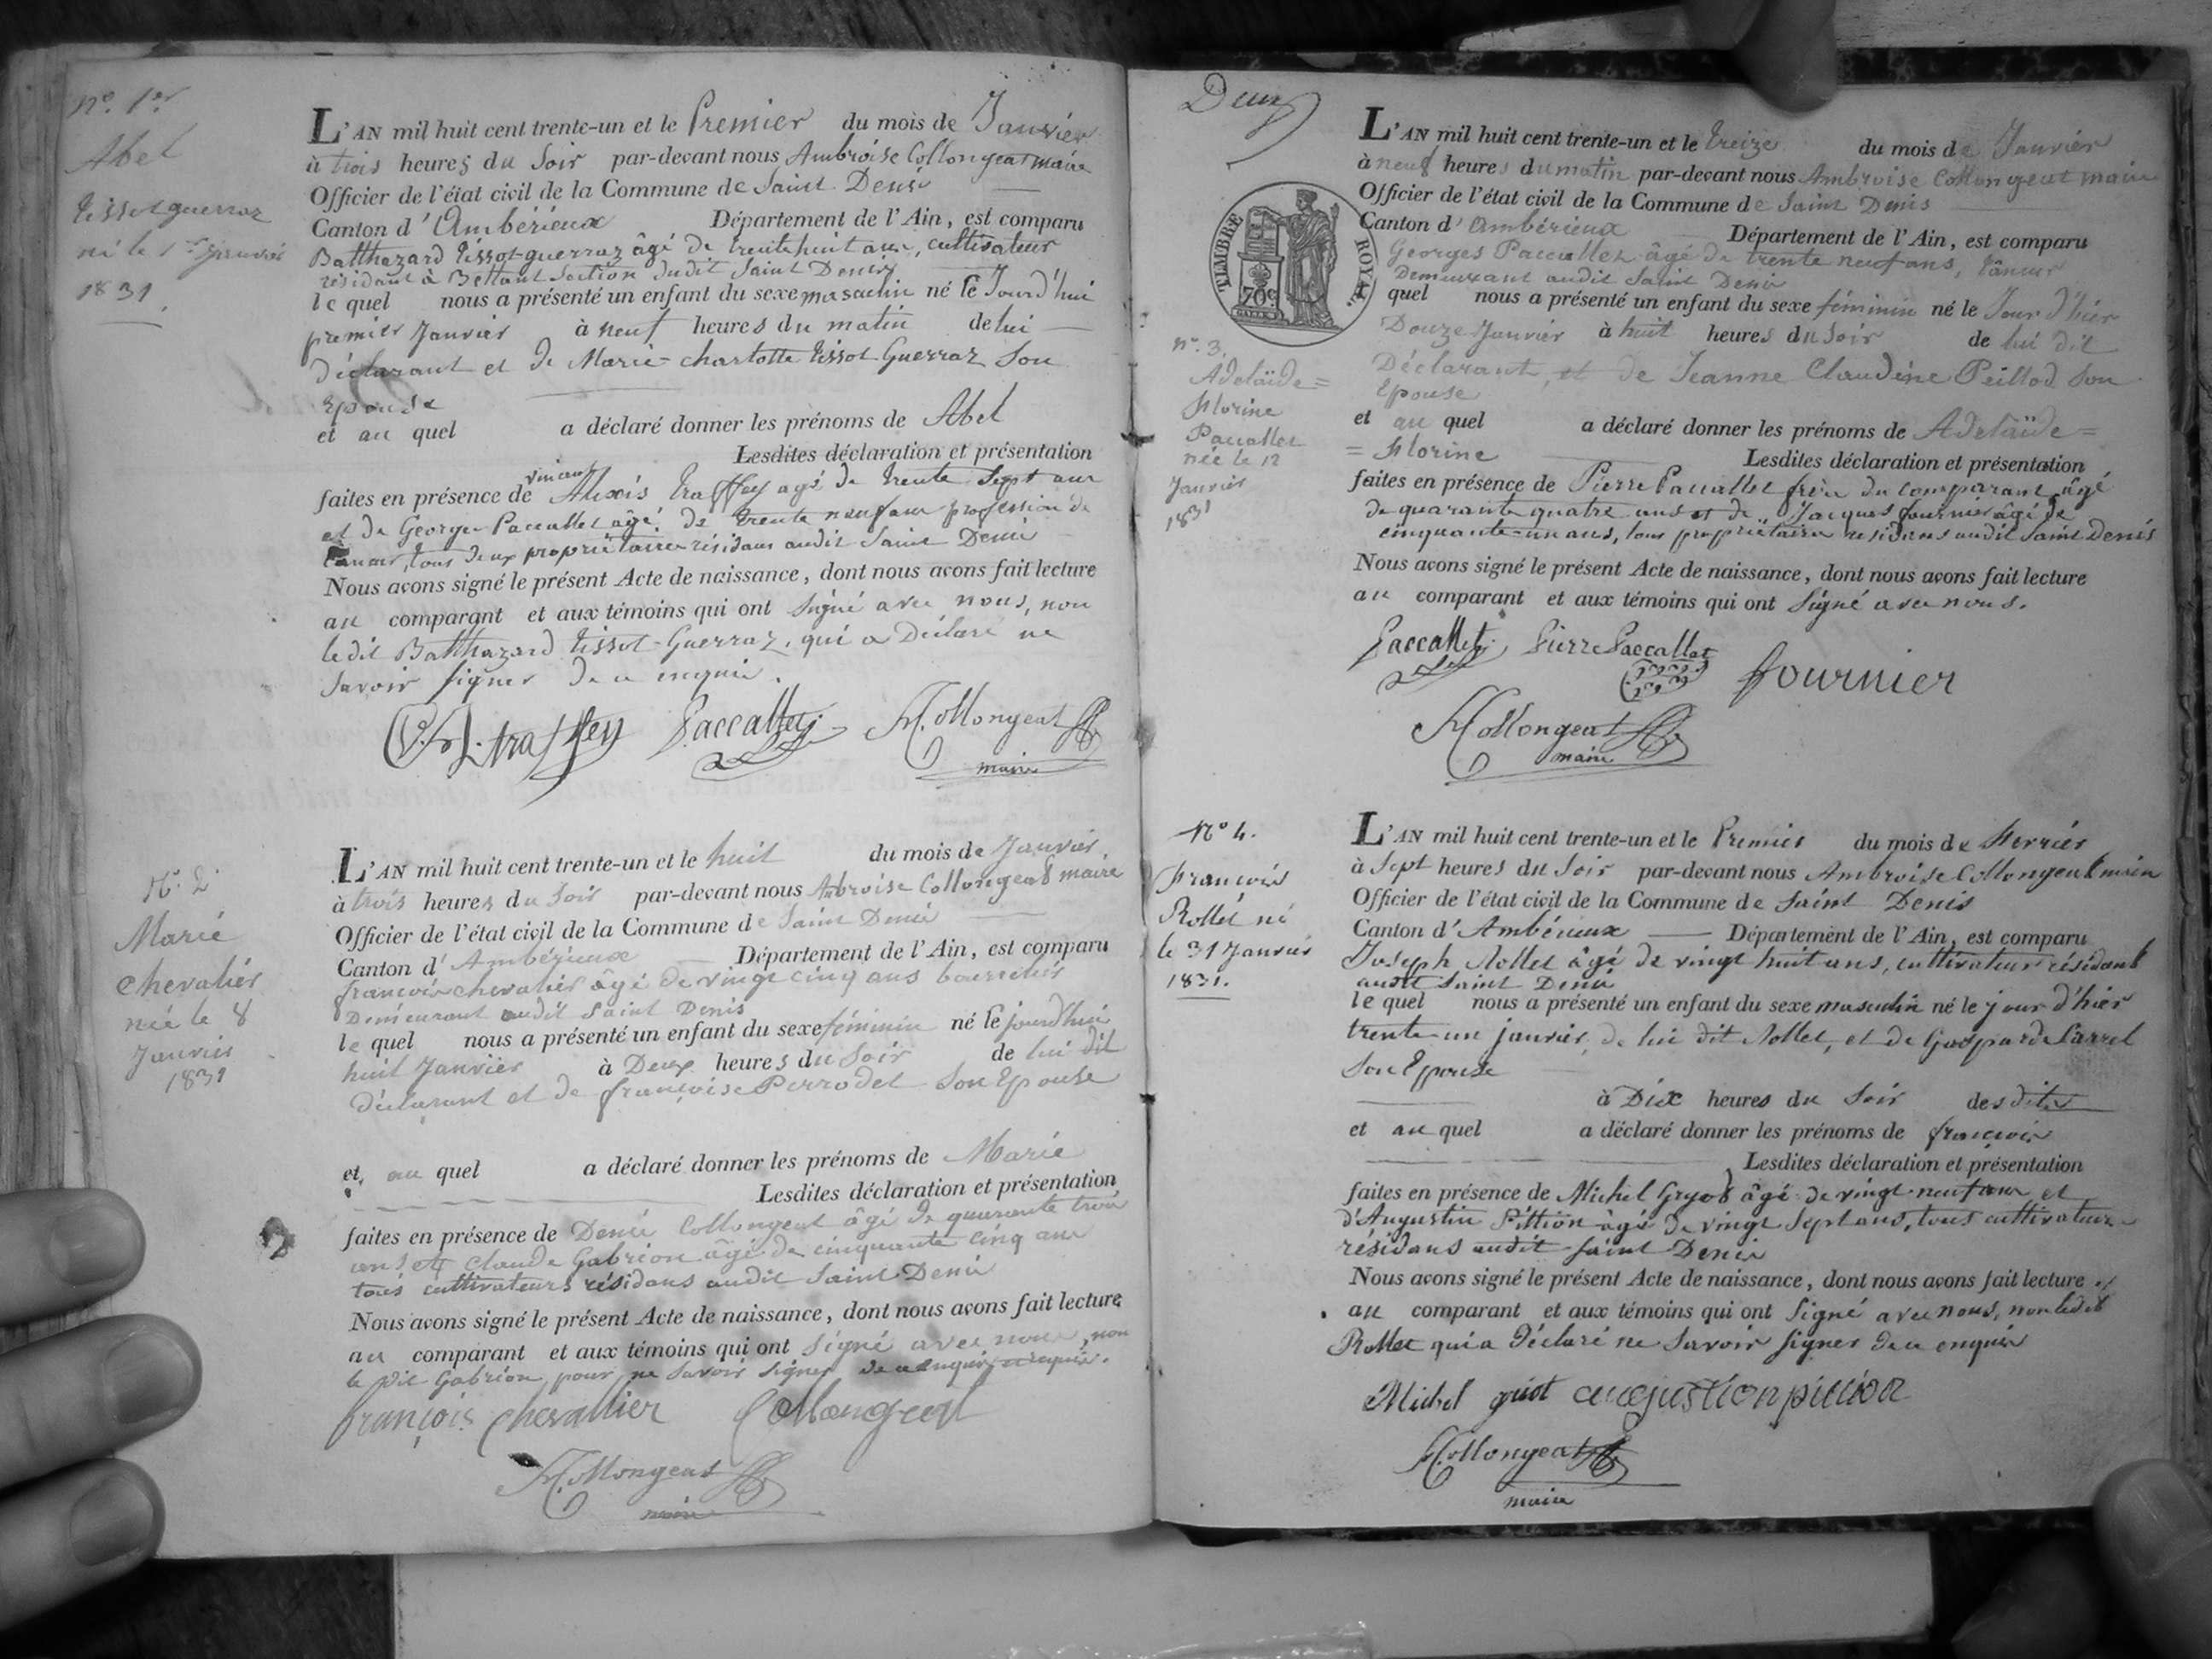 n°. 1er
Abel
tissot guerraz
né le 1er Janvier
1831.
L'AN mil huit cent trente-un et le Premier du mois de Janvier
à trois heures du Soir par-devant nous Ambroise Collongeat maire
Officier de l'état civil de la Commune de Saint Denis
Canton d'Ambérieux Département de l'Ain, est comparu
Balthazard tissot-guerraz âgé de trente huit ans, cultivateur
résidant à Bettant Section dudit Saint Denis
le quel nous a présenté un enfant du sexe masculin né le Jourd'hui
premier Janvier à neuf heures du matin de lui
Déclarant et de Marie-charlotte tissot-Guerraz Son
Epouse
et au quel a déclaré donner les prénoms de Abel
Lesdites déclaration et présentation
faites en présence de vincent Alexis traffey agé de trente Sept ans
et de George Paccallet âgé de trente neuf ans profession de
tanneur, tous deux propriétaires résidans audit Saint Denis
Nous avons signé le présent Acte de naissance, dont nous avons fait lecture
au comparant et aux témoins qui ont Signé avec nous, non
ledit Balthazard tissot-Guerraz, qui a Déclaré ne
Savoir signer De ce enquis.
traffey Paccallet Collongeat
maire
N°. 2
Marie
Chevalier
née le 8
Janvier
1831
L'AN mil huit cent trente-un et le huit du mois de Janvier
à trois heures du Soir par-devant nous Ambroise Collongeat maire
Officier de l'état civil de la Commune de Saint Denis
Canton d'Ambérieux Département de l'Ain, est comparu
françois chevalier âgé de vingt cinq ans bourrelier
Demeurant audit Saint Denis
le quel nous a présenté un enfant du sexe féminin né le jourd'hui
huit Janvier à Deux heures du Soir de lui dit
déclarant et de françoise Perrodet Son Epouse
et au quel a déclaré donner les prénoms de Marie
Lesdites déclaration et présentation
faites en présence de Denis Collongeat âgé de quarante trois
ans et Claude Gabrion âgé de cinquante cinq ans
tous cultivateurs résidans audit Saint Denis
Nous avons signé le présent Acte de naissance, dont nous avons fait lecture
au comparant et aux témoins qui ont signé avec nous, non
le dit Gabrion, pour ne Savoir signer de ce enquis
françois chevallier Collongeat
Collongeat
maire
Deux
TIMBRE ROYAL
70c
n°. 3.
Adelaïde=
florine
Paccallet
née le 12
Janvier
1831
L'AN mil huit cent trente-un et le treize du mois de Janvier
à neuf heures du matin par-devant nous Ambroise Collongeat maire
Officier de l'état civil de la Commune de Saint Denis
Canton d'Ambérieux Département de l'Ain, est comparu
Georges Paccallet âgé de trente neuf ans, tanneur
Demeurant audit Saint Denis
quel nous a présenté un enfant du sexe féminin né le Jour d'hier
Douze Janvier à huit heures du Soir de lui dit
Déclarant, et de Jeanne Claudine Peillod Son
Epouse
et au quel a déclaré donner les prénoms de Adelaïde=
=florine Lesdites déclaration et présentation
faites en présence de Pierre Paccallet frère du comparant âgé
de quarante quatre ans et de Jacques fournier âgé de
cinquante-un ans, tous propriétaires résidans audit Saint Denis
Nous avons signé le présent Acte de naissance, dont nous avons fait lecture
au comparant et aux témoins qui ont Signé avec nous.
Paccallet Pierre Paccallet fournier
Collongeat
maire
N° 4.
François
Rollet né
le 31 Janvier
1831.
L'AN mil huit cent trente-un et le Premier du mois de fevrier
à Sept heures du Soir par-devant nous Ambroise Collongeat maire
Officier de l'état civil de la Commune de Saint Denis
Canton d'Ambérieux Département de l'Ain, est comparu
Joseph Rollet âgé de vingt huit ans, cultivateur résidant
audit Saint Denis
le quel nous a présenté un enfant du sexe masculin né le jour d'hier
trente un janvier, de lui dit Rollet, et de Gasparde Carrel
Son Epouse
à Dix heures du Soir desdits
et au quel a déclaré donner les prénoms de françois
Lesdites déclaration et présentation
faites en présence de Michel Gryot âgé de vingt neuf ans et
d'Augustin Pittion âgé de vingt Sept ans, tous cultivateurs
résidans audit Saint Denis
Nous avons signé le présent Acte de naissance, dont nous avons fait lecture
au comparant et aux témoins qui ont Signé avec nous, non ledit
Rollet qui a Déclaré ne Savoir signer de ce enquis
Michel guiot augustion pittion
Collongeat
maire